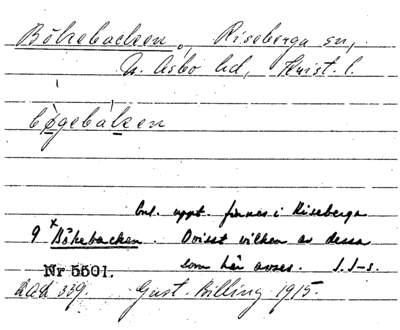 Bökebacken, Riseberga sn,
N. Åsbo hd, Krist. l.
bøgebaken
Enl. uppt. finnes i Riseberga
9 Bökebacken. Ovisst vilken av dessa
som här avses. S.J-s.
Nr 5501.
339. Gust. Billing 1915.